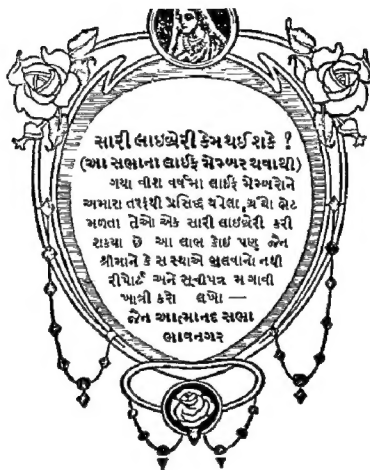 સારી લાઇબ્રેરી કેમ થઈ શકે ?
(આ સભાના લાઈફ મેમ્બર થવાથી)
ગયા વીશ વર્ષમા લાઈફ મેમ્બરોને
અમારા તરફથી પ્રસિદ્ધ થયેલા ગ્રંથો ભેટ
મળતા તેઓ એક સારી લાઇબ્રેરી કરી
શકયા છે આ લાભ કોઇ પણ જૈન
શ્રીમાને કે સ સ્થાએ ભુલવાનો નથી
રીપોર્ટ અને સૂચીપત્ર મ ગાવી
ખાત્રી કરો લખો —
જૈન આત્માનદ સભા
ભાવનગર